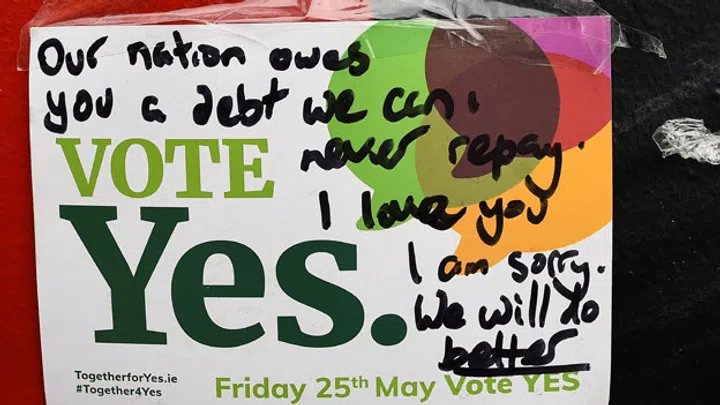 Our nation owes
you a debt we can
never repay.
I love you
I am sorry.
We will do
better
VOTE
Yes.
TogetherforYes.ie
#Together4Yes
Friday 25th May Vote YES